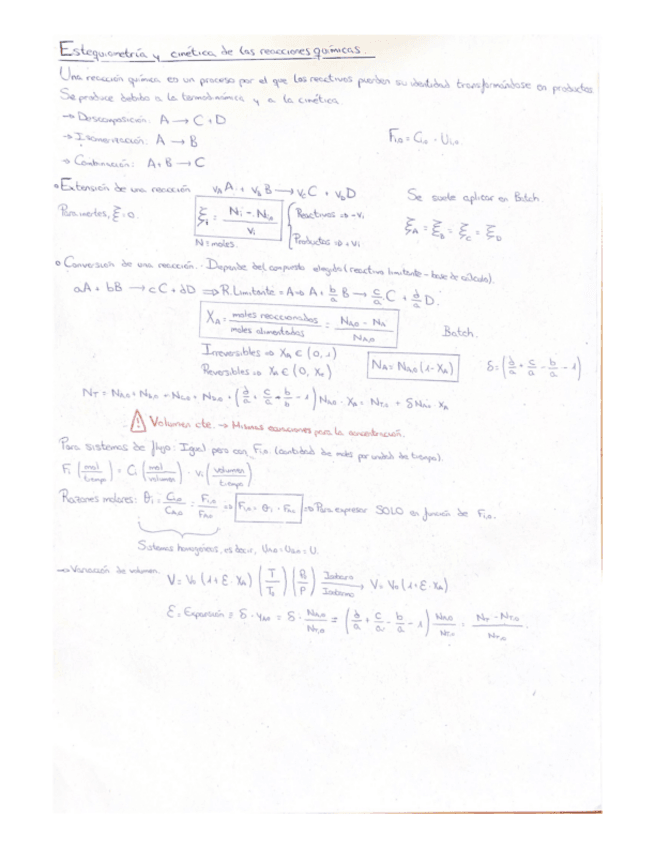 Estequiometría y cinética de las reacciones químicas.
Una reacción química es un proceso por el que los reactivos pierden su identidad transformándose en productos.
Se produce debido a la termodinámica y a la cinética.
→ Descomposición: A → C + D
→ Isomerización: A → B
F_i,0 = C_i,0 · U_i,0.
→ Combinación: A + B → C
• Extensión de una reacción ν_A A + ν_B B → ν_C C + ν_D D
Se suele aplicar en Batch.
Para inertes, ξ = 0.
ξ_i = (N_i - N_i,0) / ν_i
Reactivos ⇒ -ν_i
Productos ⇒ +ν_i
ξ_A = ξ_B = ξ_C = ξ_D
N = moles.
• Conversión de una reacción. - Depende del compuesto elegido (reactivo limitante - base de cálculo).
aA + bB → cC + dD ⇒ R. Limitante = A ⇒ A + b/a B → c/a C + d/a D.
X_A = moles reaccionados / moles alimentados = (N_A,0 - N_A) / N_A,0
Batch.
Irreversibles ⇒ X_A ∈ (0, 1)
Reversibles ⇒ X_A ∈ (0, X_e)
N_A = N_A,0 (1 - X_A)
δ = (d/a + c/a - b/a - 1)
⚠ Volumen cte. → Mismas ecuaciones para la concentración.
Para sistemas de flujo: Igual pero con F_i,0. (cantidad de moles por unidad de tiempo).
F_i (mol/tiempo) = C_i (mol/volumen) · v_i (volumen/tiempo)
Razones molares: θ_i = C_i,0 / C_A,0 = F_i,0 / F_A,0 ⇒ F_i,0 = θ_i · F_A,0 ⇒ Para expresar SOLO en función de
Sistemas homogéneos, es decir, U_A,0 = U_B,0 = U.
→ Variación de volumen.
V = V_0 (1 + ε · X_A) (T/T_0) (P_0/P) Isobaro Isotermo → V = V_0 (1 + ε · X_A)
ε = Expansión = δ · y_A,0 = δ · N_A,0 / N_T,0 = (d/a + c/a - b/a - 1) N_A,0 / N_T,0 = (N_T - N_T,0) / N_T,0.